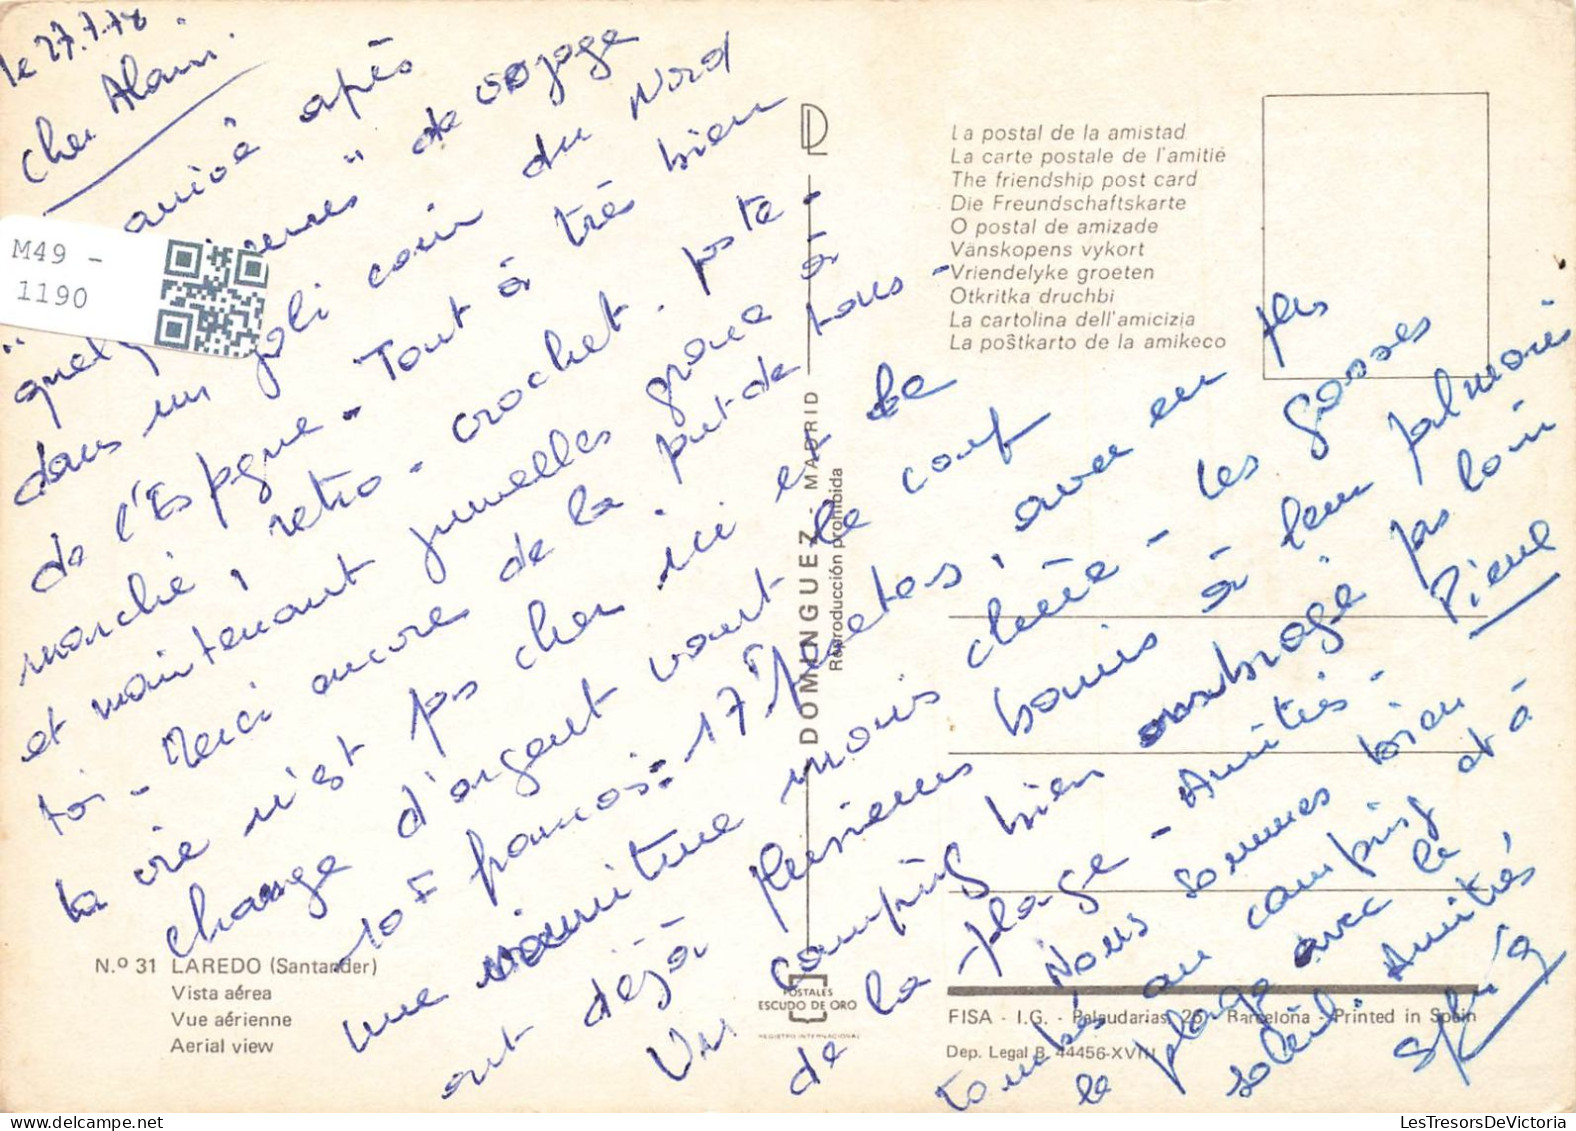 le 27.7.78
Cher Alain.
arrivé après
"quelques heures" de voyage
dans un joli coin du Nord
de l'Espagne - Tout à très bien
marché, retro - crochet. poste -
et maintenant jumelles grace à
toi - Merci encore de la part de tous -
la vie n'est pas cher ici et le
change d'argent vaut le coup
10 F francais = 17 Pesetas, avec en plus
une nourriture moins chère - les gosses
ont déjà plusieurs bornes à leur palmares
Un camping bien ombragé pas loin
de la plage - Amitiés - Pierre
Nous sommes bien
tombés au camping et à
la plage avec le
soleil. Amitiés
Sylvia
M49 -
1190
La postal de la amistad
La carte postale de l'amitié
The friendship post card
Die Freundschaftskarte
O postal de amizade
Vänskopens vykort
Vriendelyke groeten
Otkritka druchbi
La cartolina dell'amicizia
La poŝtkarto de la amikeco
DOMINGUEZ - MADRID
Reproducción prohibida
N.º 31 LAREDO (Santander)
Vista aérea
Vue aérienne
Aerial view
POSTALES
ESCUDO DE ORO
REGISTRO INTERNACIONAL
FISA - I.G. - Palaudarias, 26 - Barcelona - Printed in Spain
Dep. Legal B. 44456-XVIII
LesTresorsDeVictoria